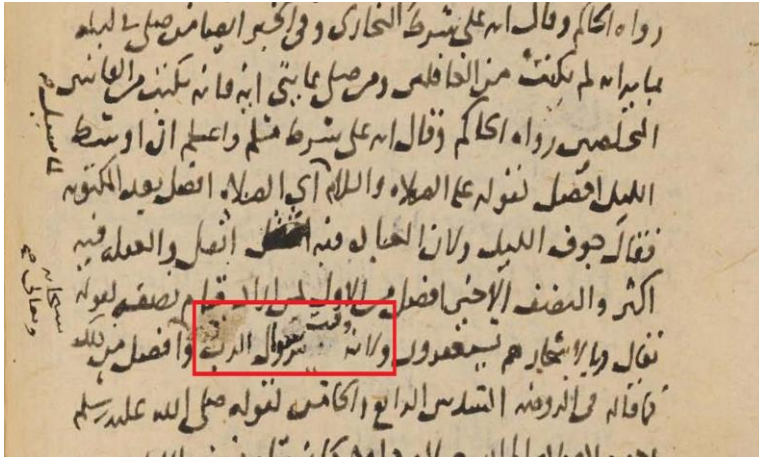 رواه الحاكم وقال انه على شرط البخاري وفي الخبر ايضا من صلى في ليلة
بماية اية لم يكتب من الغافلين ومن صلى بمايتي اية فانه يكتب من القانتين
المخلصين رواه الحاكم وقال انه على شرط مسلم واعلم ان اوسط
الليل افضل لقوله عليه الصلاه والسلام اي الصلاه افضل بعد المكتوبه
فقال جوف الليل ولان العباده فيه اثقل والغفله فيه
اكثر والنصف الاخير افضل من الاول لمن اراد قيام نصفه لقوله
تعالى وبالاسحار هم يستغفرون ولانه وقت نزول الرب وافضل من ذلك
ما قاله في الروضه السدس الرابع والخامس لقوله صلى الله عليه وسلم
سبحانه
وتعالى